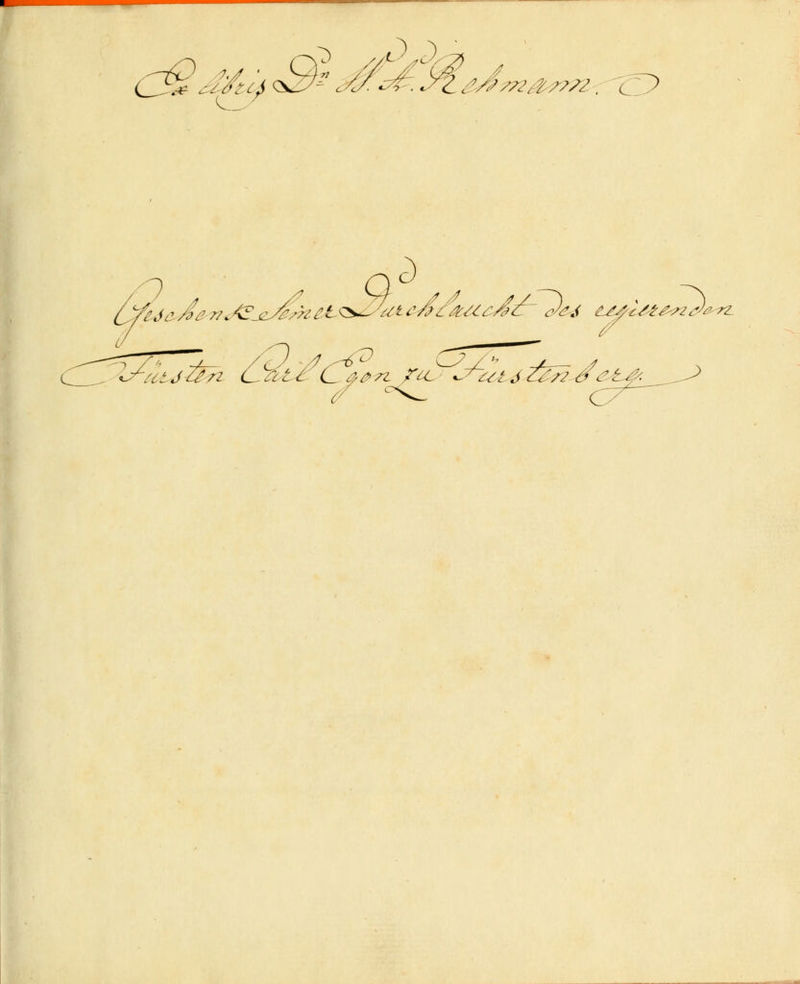 Ex libris Dris W. A. Rehmann.
Geschenk Seiner Durchlaucht des regierenden
Fürsten Carl Egon zu Fürstenberg.